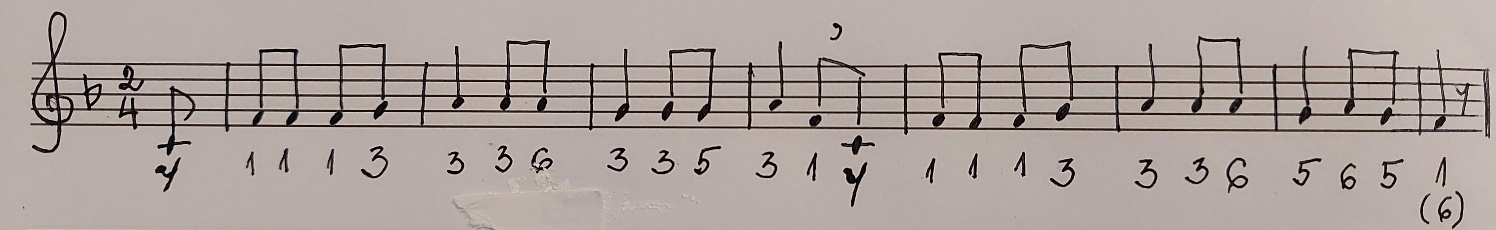 2
4
1 1 1 3 3 3 6 3 3 5 3 1 1 1 1 3 3 3 6 5 6 5 1
(6)